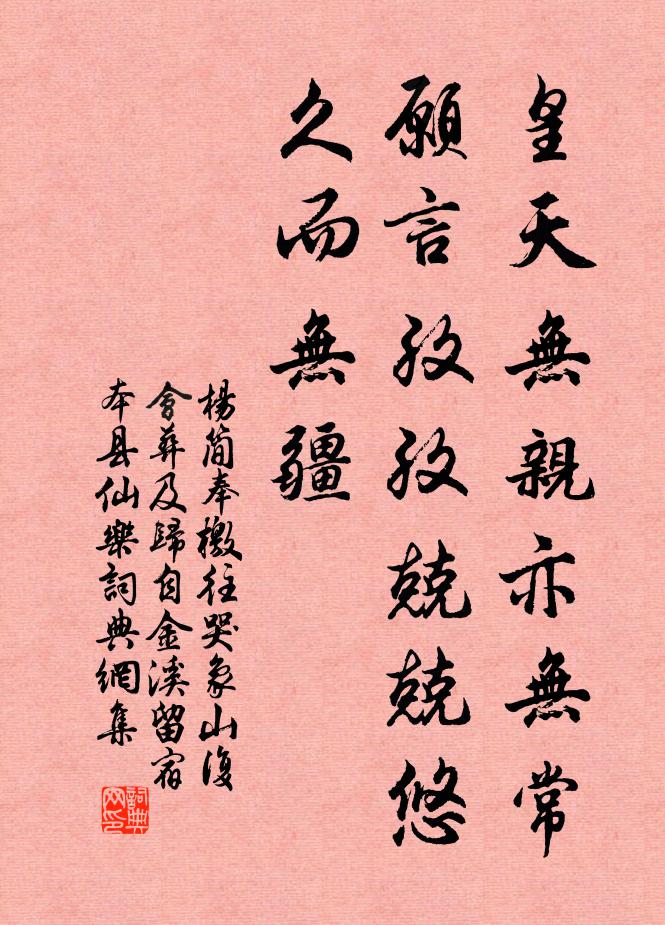 皇天無親亦無常
願言孜孜兢兢悠
久而無疆
楊简奉檄往哭象山復
會葬及歸自金溪留宿
本县仙樂詞典網集
詞典
网印